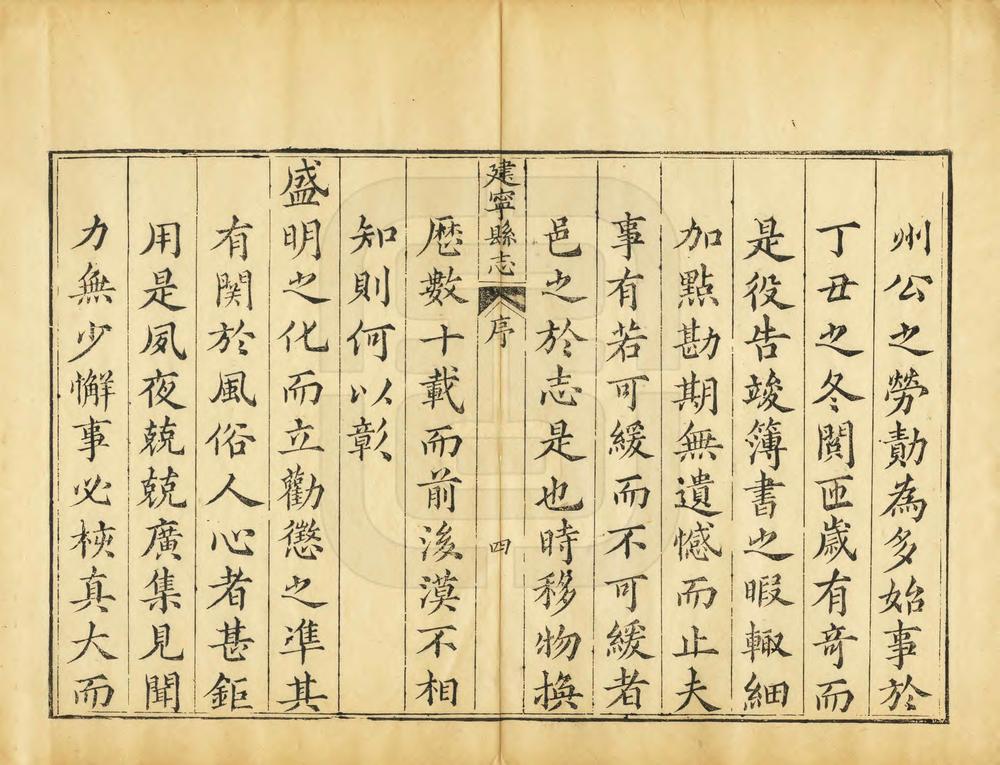 州公之勞勣為多始事於
丁丑之冬閱匝歲有奇而
是役告竣簿書之暇輙細
加點勘期無遺憾而止夫
事有若可緩而不可緩者
邑之於志是也時移物換
建寧縣志 序 四
歷數十載而前後漠不相
知則何以彰
盛明之化而立勸懲之準其
有関於風俗人心者甚鉅
用是夙夜兢兢廣集見聞
力無少懈事必核真大而